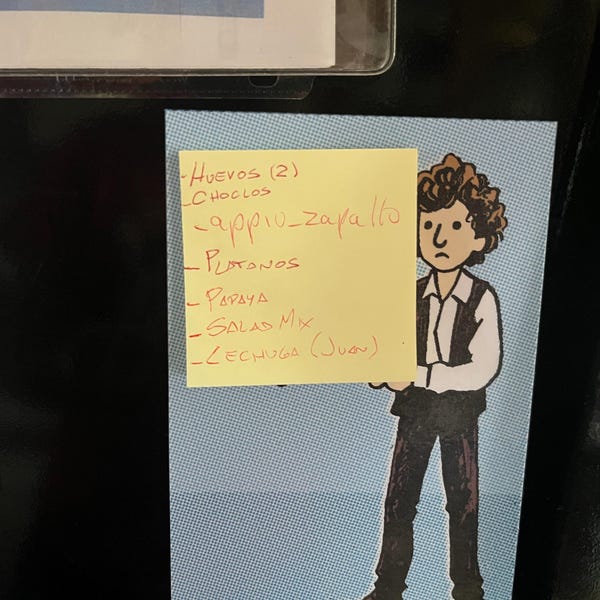 - HUEVOS (2)
- CHOCLOS
- appio - zapallo
- PLATANOS
- PAPAYA
- SALAD MIX
- LECHUGA (JUAN)